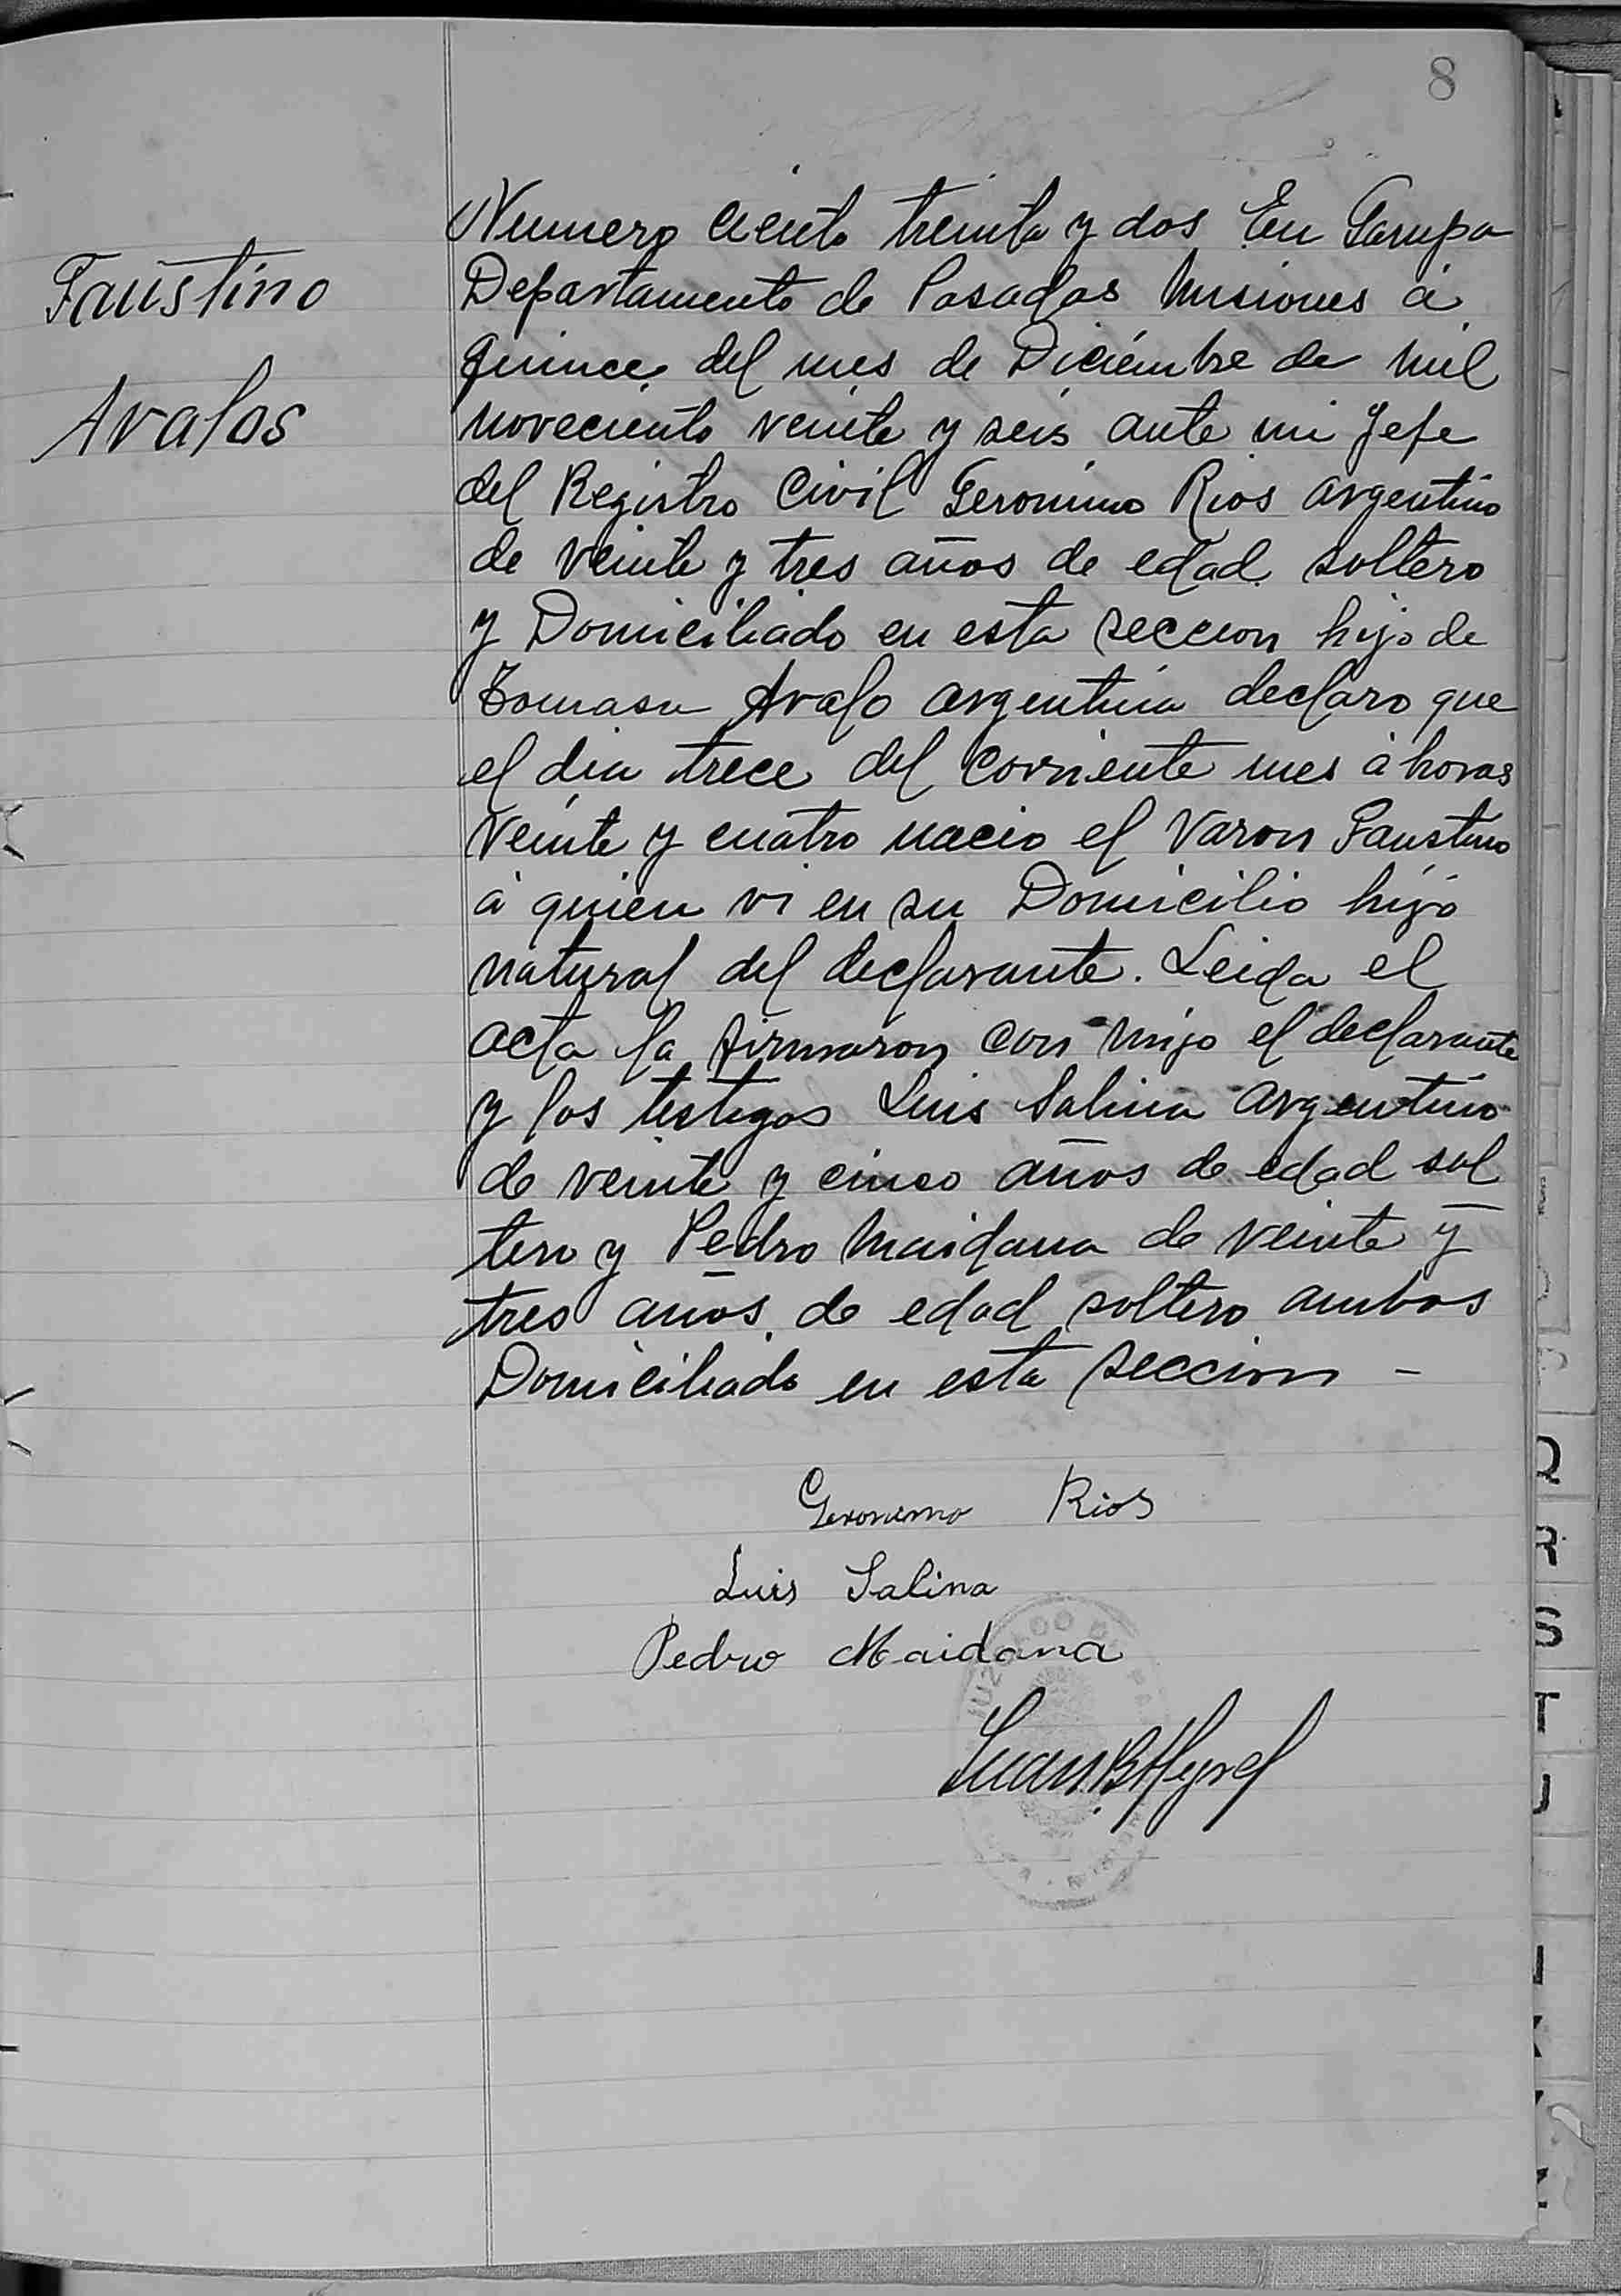 8
Faustino
Avalos
Numero Ciento treinta y dos En Garupa
Departamento de Posadas Misiones á
quince del mes de Diciembre de mil
noveciento veinte y seis ante mi Jefe
del Registro Civil Geronimo Rios argentino
de veinte y tres años de edad soltero
y Domiciliado en esta seccion hijo de
Tomasa Avalo argentina declaro que
el dia trece del corriente mes á horas
veinte y cuatro nacio el Varon Faustino
á quien vi en su Domicilio hijo
natural del declarante. Leida el
acta la firmaron con migo el declarante
y los testigos Luis Salina argentino
de veinte y cinco años de edad sol
tero y Pedro Maidana de veinte y
tres años de edad soltero ambos
Domiciliado en esta seccion -
Geronimo Rios
Luis Salina
Pedro Maidana
Juan B
Q
R
S
T
U